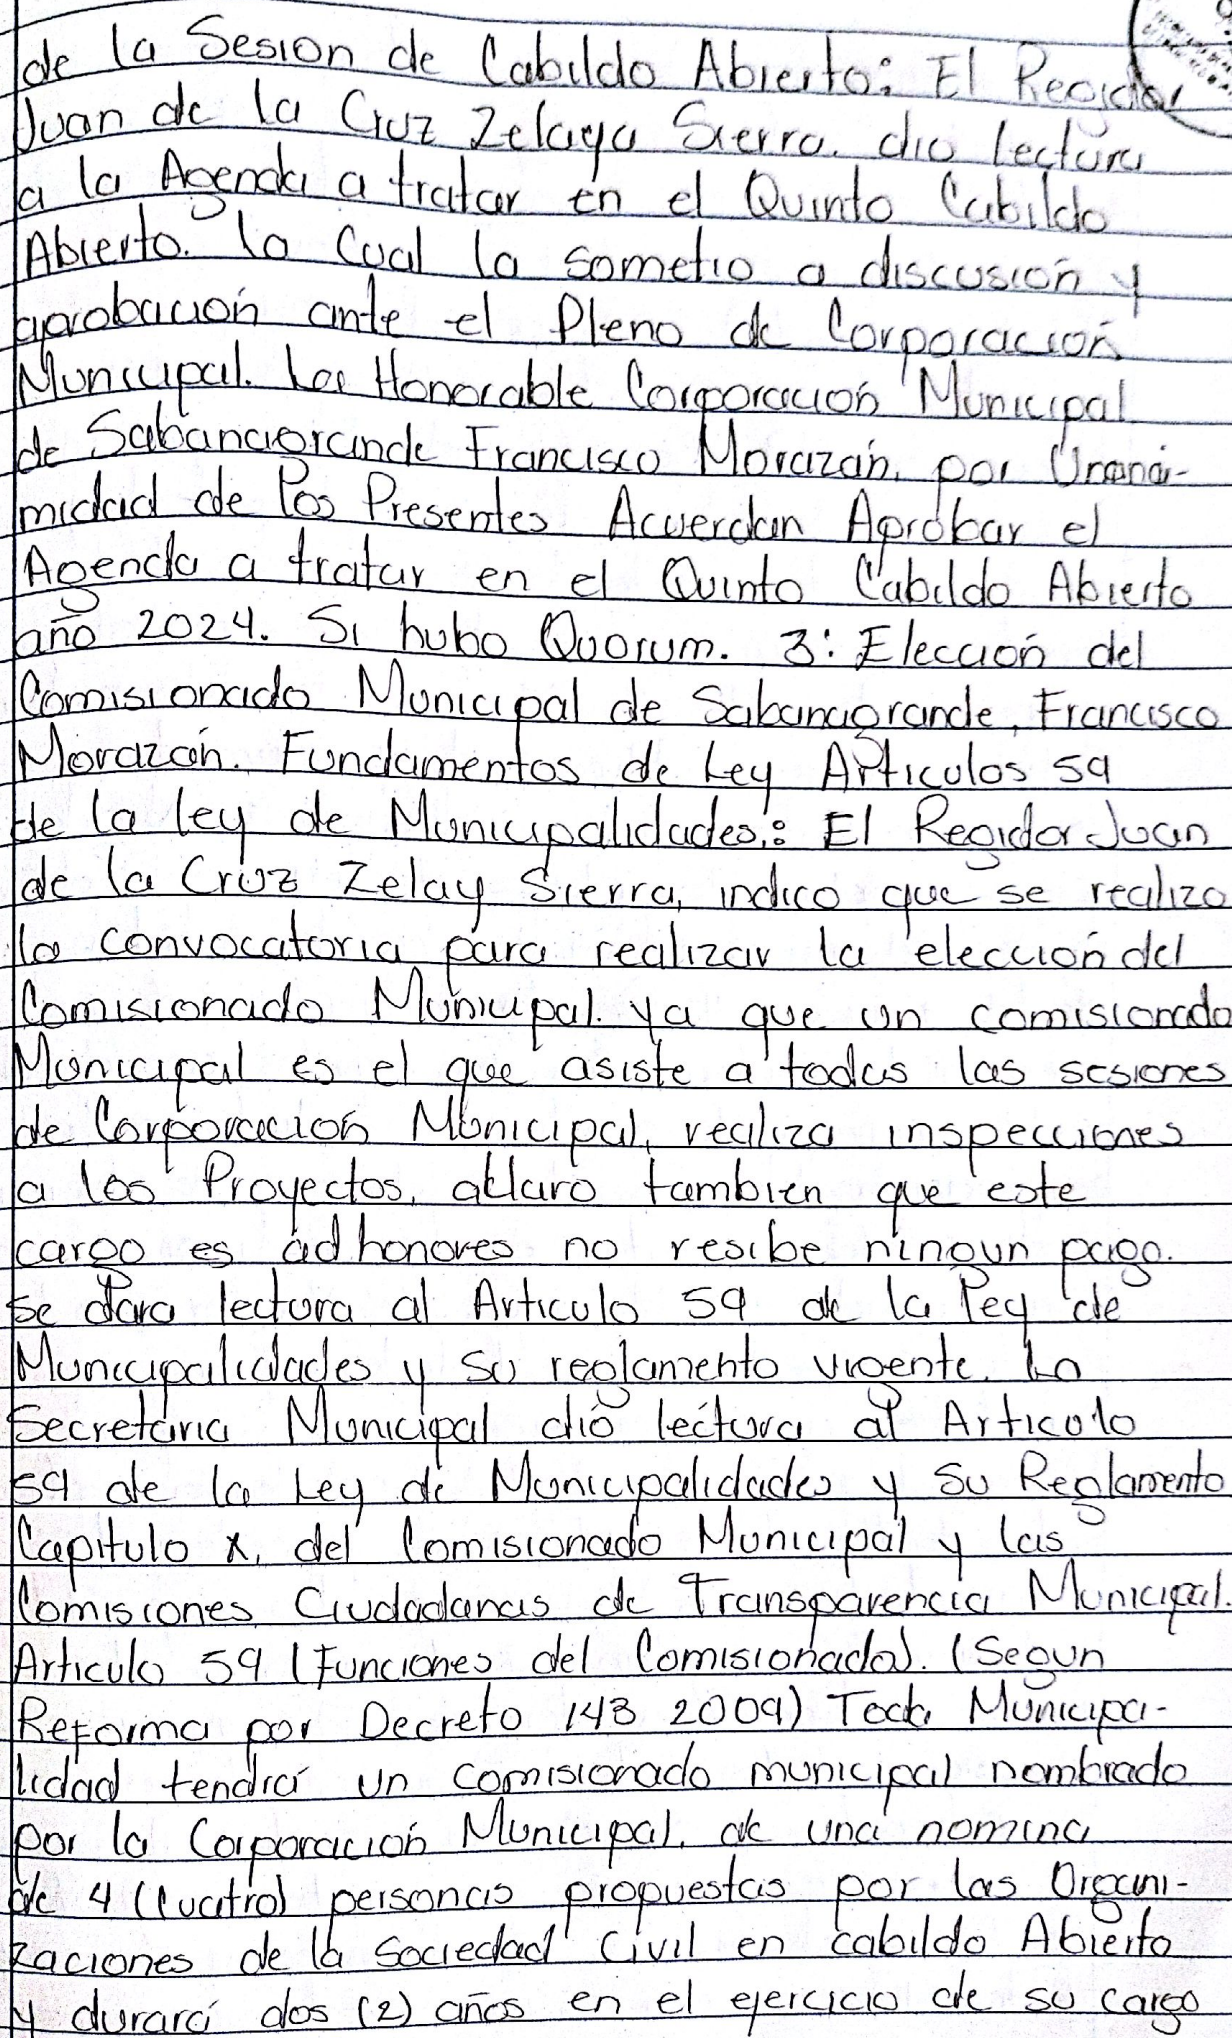 de la Sesion de Cabildo Abierto: El Regidor
Juan de la Cruz Zelaya Sierra. dio lectura
a la Agenda a tratar en el Quinto Cabildo
Abierto. lo Cual lo sometio a discusión y
aprobación ante el Pleno de Corporación
Municipal. La Honorable Corporación Municipal
de Sabanagrande Francisco Morazán, por Unani-
midad de los Presentes Acuerdan Aprobar el
Agenda a tratar en el Quinto Cabildo Abierto
año 2024. Si hubo Quorum. 3: Elección del
Comisionado Municipal de Sabanagrande, Francisco
Morazán. Fundamentos de Ley Articulos 59
de la ley de Municipalidades.: El Regidor Juan
de la Cruz Zelay Sierra, indico que se realizo
la convocatoria para realizar la elección del
Comisionado Municipal. ya que un comisionado
Municipal es el que asiste a todas las sesiones
de Corporación Municipal, realiza inspecciones
a los Proyectos, acláro tambien que este
cargo es ad honores no resibe ningun pago.
se dara lectura al Articulo 59 de la ley de
Municipalidades y su reglamento vigente. La
Secretaria Municipal dio lectura al Articulo
59 de la Ley de Municipalidades y Su Reglamento
Capitulo X, del Comisionado Municipal y las
Comisiones Ciudadanas de Transparencia Municipal.
Articulo 59 (Funciones del Comisionado). (Segun
Reforma por Decreto 143 2009) Toda Municipa-
lidad tendrá un comisionado municipal nombrado
por la Corporación Municipal, de una nomina
de 4 (cuatro) personas propuestas por las Organi-
zaciones de la Sociedad Civil en cabildo Abierto
y durará dos (2) años en el ejercicio de su cargo